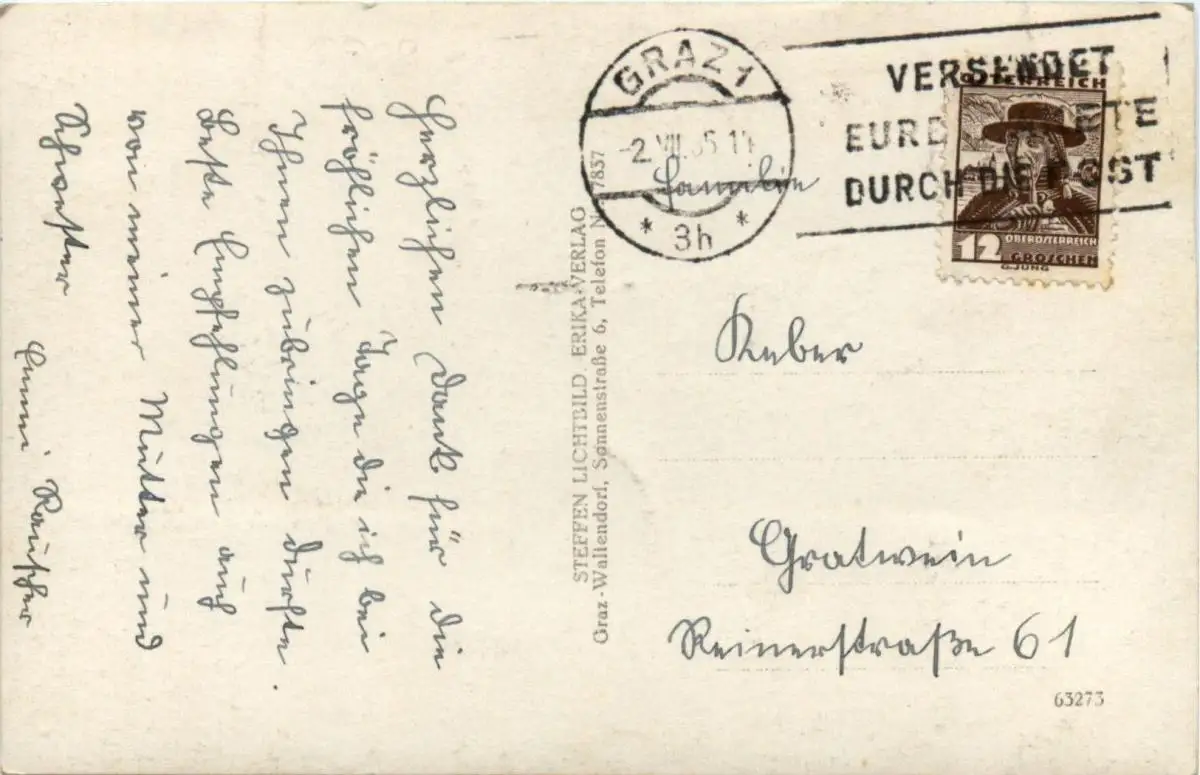 Herzlichen Dank für die
fröhlichen Tage die ich bei
Ihnen zubringen durfte.
Beste Empfehlungen auch
von meiner Mutter und
Schwester
Emmi Rauscher
STEFFEN LICHTBILD. ERIKA-VERLAG
Graz-Waltendorf, Sonnenstraße 6, Telefon 7837
GRAZ 1
-2. VIII. 35
* 3h *
VERSENDET
EURE
DURCH DIE POST
ÖSTERREICH
12
OBERÖSTERREICH
GROSCHEN
G.JUNG
Familie
Kuber
Gratwein
Reinerstraße 61
63273